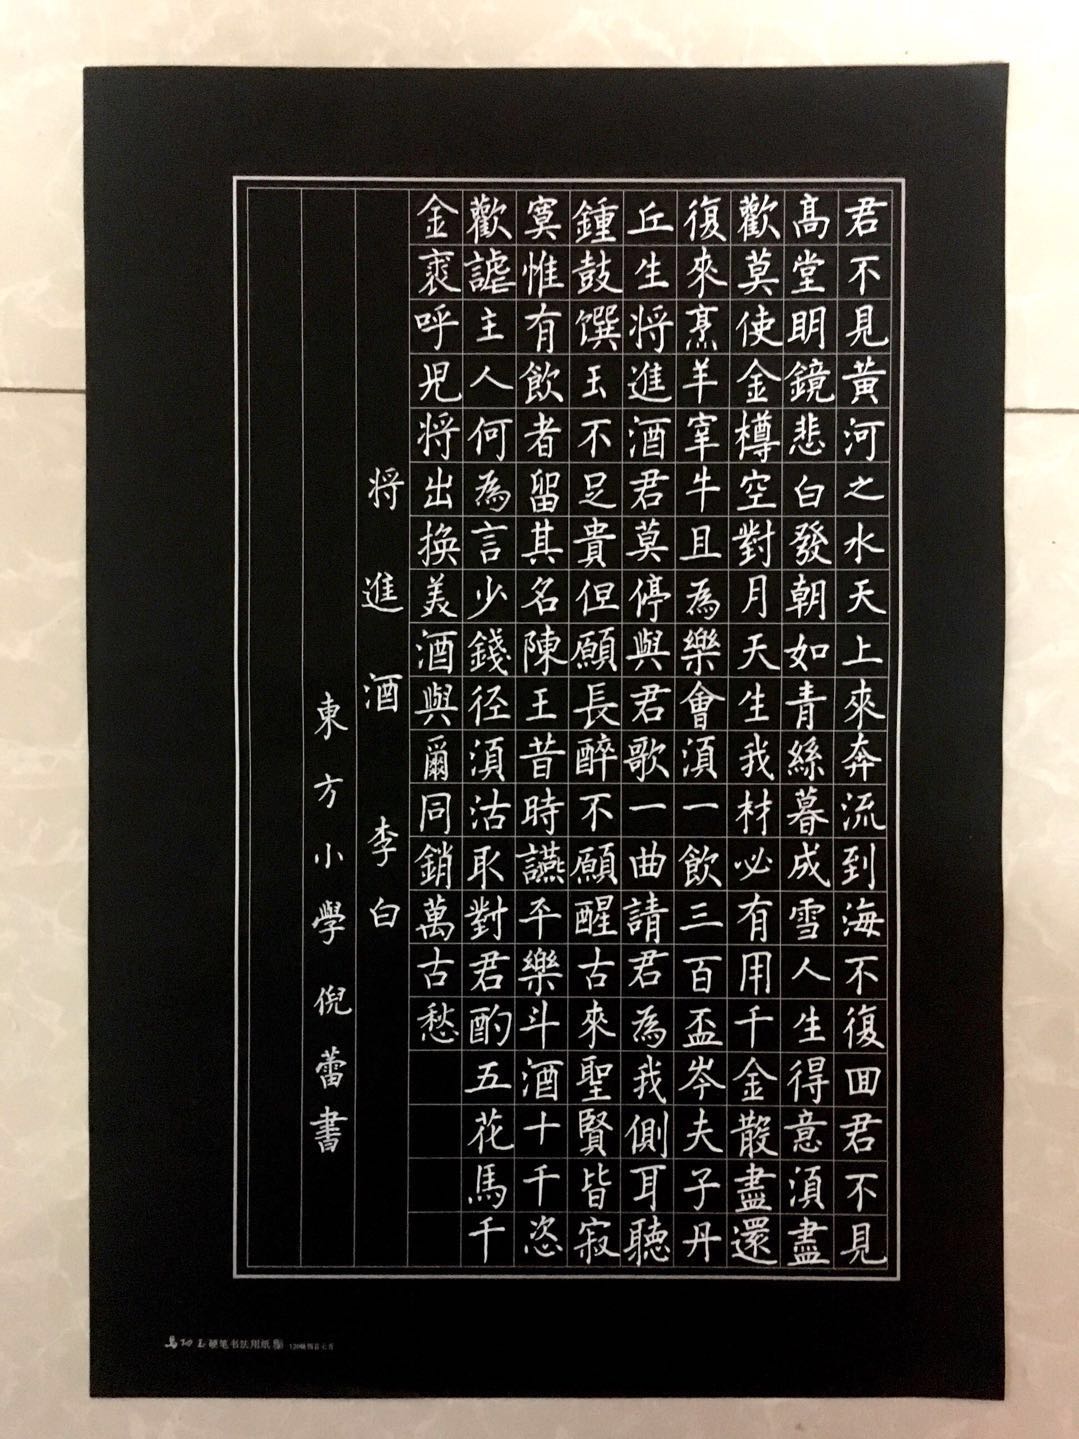 君不見黃河之水天上來奔流到海不復回君不見
高堂明鏡悲白發朝如青絲暮成雪人生得意須盡
歡莫使金樽空對月天生我材必有用千金散盡還
復來烹羊宰牛且為樂會須一飲三百盃岑夫子丹
丘生将進酒君莫停與君歌一曲請君為我側耳聽
鍾鼓馔玉不足貴但願長醉不願醒古來聖賢皆寂
寞惟有飲者留其名陳王昔時讌平樂斗酒十千恣
歡謔主人何為言少錢径須沽取對君酌五花馬千
金裘呼児将出換美酒與爾同銷萬古愁
将進酒 李白
東方小學倪蕾書
硬笔书法用纸